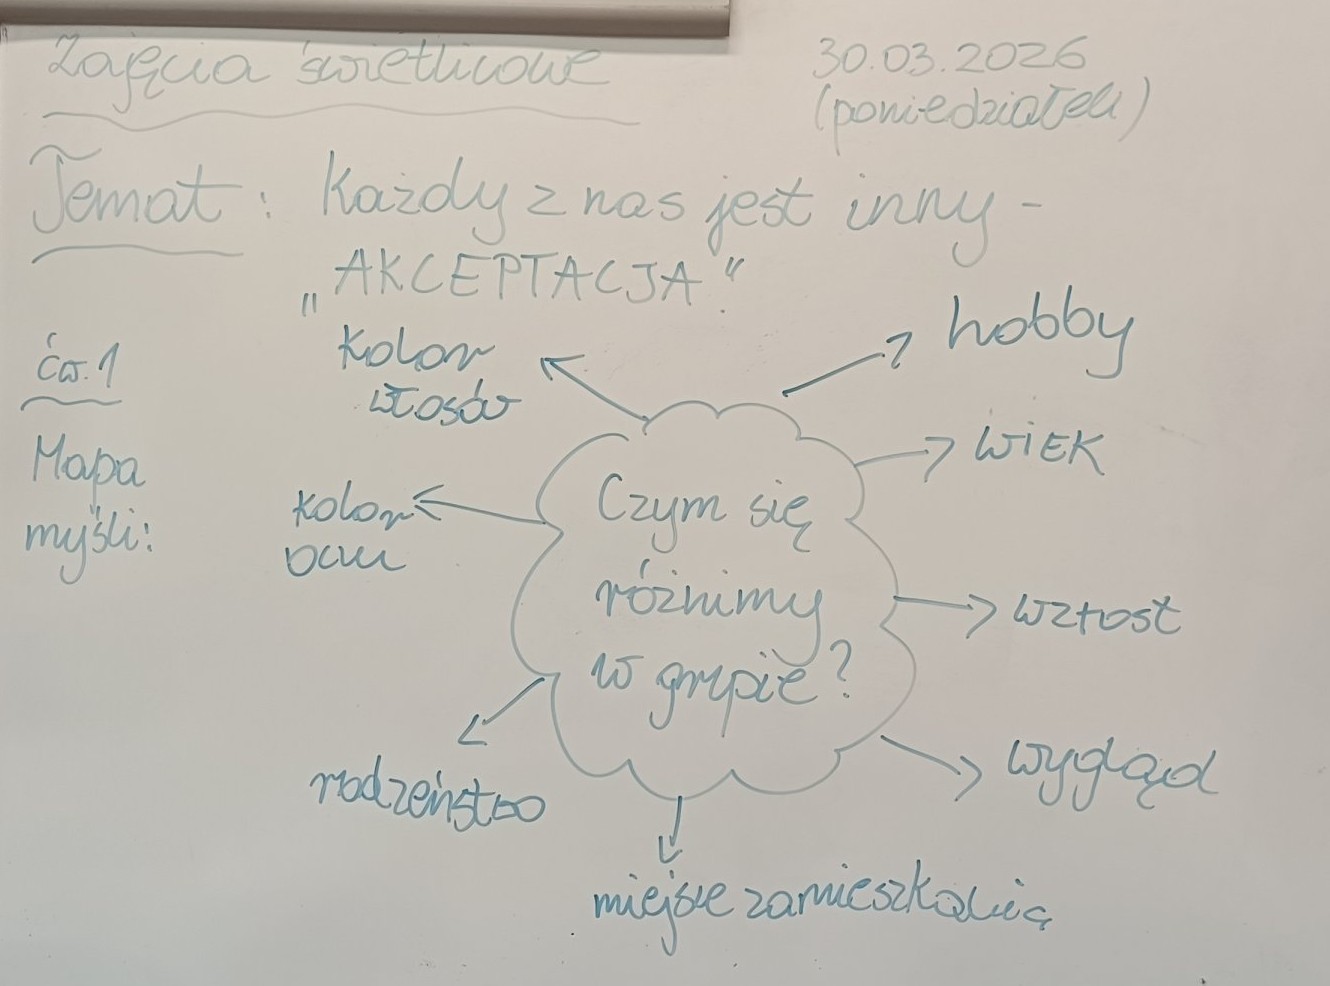 Zajęcia świetlicowe
30.03.2026
(poniedziałek)
Temat: Każdy z nas jest inny -
„AKCEPTACJA."
ćw.1
Mapa
myśli:
Czym się
różnimy
w grupie?
kolor
włosów
hobby
WiEK
kolor
oczu
wzrost
wygląd
rodzeństwo
miejsce zamieszkania